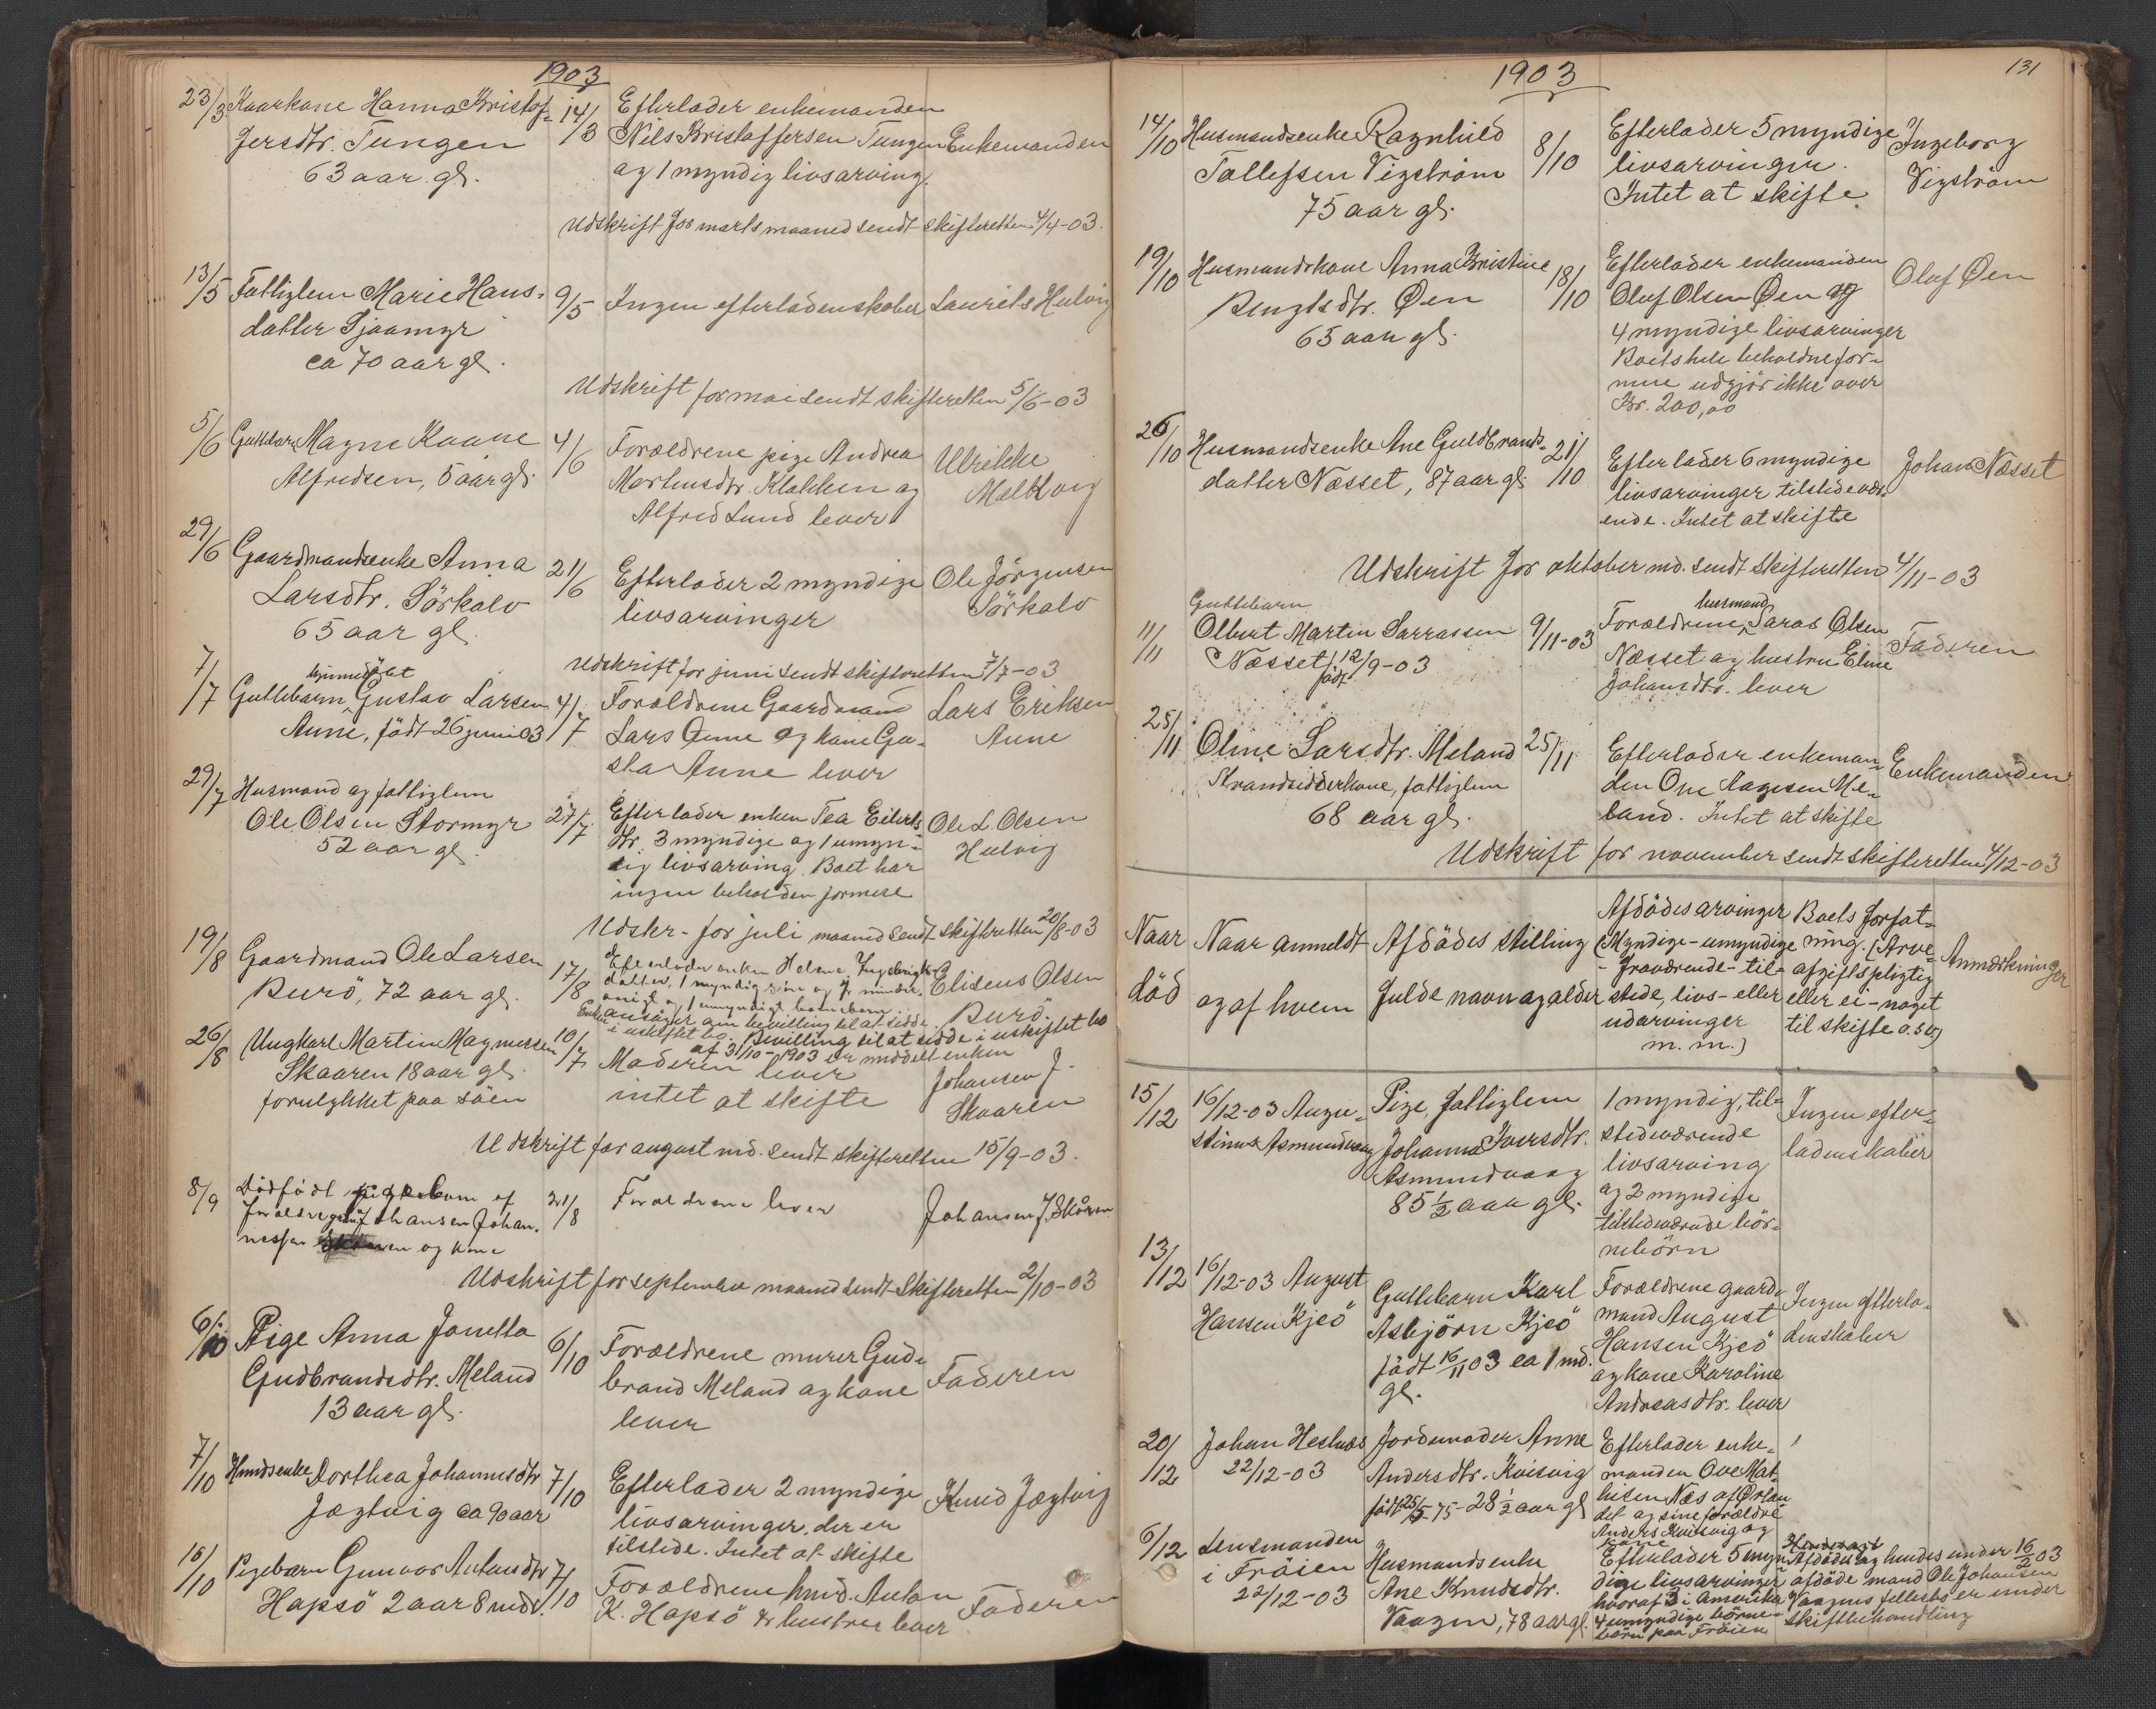 1903
23/3 Kaarkone Hanna Kristof-
fersdtr. Tungen
63 aar gl.
14/3 Efterlader enkemanden
Nils Kristoffersen Tungen
og 1 myndig livsarving.
Enkemanden
Udskrift for marts maaned sendt skifteretten 4/4-03.
13/5 Fattiglem Marie Hans-
datter Sjaamyr
ca 70 aar gl.
9/5 Ingen efterladenskaber
Laurits Hulvig
Udskrift for mai sendt skifteretten 5/6-03
5/6 Guttebarn Magne Kaane
Alfredsen, 5 aar gl.
4/6 Forældrene pige Andrea
Martinsdtr. Klakken og
Alfred Lund lever
Ulrikke
Malkvig
29/6 Gaardmandsenke Anna
Larsdtr. Sörkalv
65 aar gl.
21/6 Efterlader 2 myndige
livsarvinger
Ole Jörgensen
Sörkalv
Udskrift for juni sendt skifteretten 7/7-03
hjemmedöbt
7/7 Guttebarn Gustav Larsen
Aune, födt 26 juni 03
4/7 Forældrene Gaardmand
Lars Aune og kone Gu-
sta Aune lever
Lars Eriksen
Aune
29/7 Husmand og fattiglem
Ole Olsen Stormyr
52 aar gl.
27/7 Efterlader enken Tea Eilerts-
dtr. 3 myndige og 1 umyn-
dig livsarving. Boet har
ingen beholden formue
Ole L. Olsen
Hulvig
Udskr. for juli maaned sendt skifteretten 20/8-03
19/8 Gaardmand Ole Larsen
Burö, 72 aar gl.
17/8 Efterlader enken Helene Ingebrigts-
datter, 1 myndig sön og minder-
aarige og 1 umyndigt barnebarn
Enken ansöger om bevilling til at sidde
i uskiftet bo. Bevilling til at sidde i uskiftet bo
af 31/10-1903 er meddelt enken
Elisens Olsen
Burö.
26/8 Ungkarl Martin Magnussen
Skaaren 18 aar gl.
forulykket paa söen
10/7 Moderen lever
intet at skifte
Johansen J.
Skaaren
Udskrift for august md. sendt skifteretten 15/9-03.
8/9 Dödfödt pigebarn af
forældre Johansen Johan-
nessen Skaaren og kone
21/8 Forældrene lever
Johansen J. Skåren
Udskrift for september maaned sendt Skifteretten 2/10-03
6/10 Pige Anna Janetta
Gudbrandsdtr. Meland
13 aar gl.
6/10 Forældrene murer Gud-
brand Meland og kone
lever
Faderen
7/10 Hmdsenke Dorthea Johannesdtr
Jægtvig ca 90 aar
7/10 Efterlader 2 myndige
livsarvinger, der er
tilstede. Intet at skifte
Knud Jægtvig
16/10 Pigebarn Gunvor Antonsdtr
Hapsö 2 aar 8 mdr.
7/10 Forældrene hmd. Anton
K. Hapsö & hustru lever
Faderen
1903
131
14/10 Husmandsenke Ragnhild
Tollefsen Vigström
75 aar gl.
8/10 Efterlader 5 myndige
livsarvinger.
Intet at skifte.
Ingeborg
Vigström
19/10 Husmandskone Anna Kristine
Bengtsdtr. Øen
65 aar gl.
18/10 Efterlader enkemanden
Oluf Olsen Øen og
4 myndige livsarvinger
Boets hele beholdne for-
mue udgjör ikke over
Kr. 200,00
Oluf Øen
26/10 Husmandsenke Ane Guldbrands-
datter Næsset, 87 aar gl.
21/10 Efterlader 6 myndige
livsarvinger tilstedevær-
ende. Intet at skifte
Johan Næsset
Udskrift for oktober md. sendt skifteretten 4/11-03
Guttebarn
11/11 Olbert Martin Larssen
Næsset födt 12/9-03
9/11-03 Forældrene, husmand Laras Olsen
Næsset og hustru Eline
Johansdtr. lever
Faderen
25/11 Oline Larsdtr. Meland
Strandsidderkone, fattiglem
68 aar gl.
25/11 Efterlader enkeman-
den Ove Aagesen Me-
land. Intet at skifte
Enkemanden
Udskrift for november sendt skifteretten 4/12-03
Naar
död
Naar anmeldt
og af hvem
Afdödes stilling
fulde navn og alder
Afdödes arvinger
(Myndige-umyndige
-fraværende-til-
stede, livs-eller
udarvinger
m.m.)
Boets forfat-
ning. (Arve-
afgiftspligtig
eller ei-noget
til skifte o.s.v.)
Anmærkninger
15/12
16/12-03 Augu-
stinus Asmundvaag
Pige, fattiglem
Johanna Iversdtr.
Asmundvaag
85 1/2 aar gl.
1 myndig, til-
stedeværende
livsarving
og 2 myndige
tilstedeværende bör-
nebörn
Ingen efter-
ladenskaber
13/12
16/12-03 August
Hansen Kjeö
Guttebarn Karl
Asbjörn Kjeö
födt 16/11 03 ca 1 md.
gl.
Forældrene gaard-
mand August
Hansen Kjeö
og kone Karoline
Andreasdtr. lever
Ingen efterla-
denskaber
20/12
Johan Hestnes
22/12-03
Jordemoder Anne
Andersdtr. Kvisvig
födt 25/5-75 - 28 1/2 aar gl
Efterlader enke-
manden Ove Mat-
hisen Næs af Ørlan
det og sine forældre
Anders Kvisvig og
kone
6/12
Lensmanden
i Fröien
22/12-03
Husmandsenke
Ane Knudsdtr.
Vaagen, 78 aar gl.
Efterlader 5 myn-
dige livsarvinger
hvoraf 3 i Amerika
4 umyndige börne-
börn paa Fröien
Afdödes og hendes under 16/2 03
afdöde mand Ole Johansen
Vaagens fellesbo er under
skiftebehandling